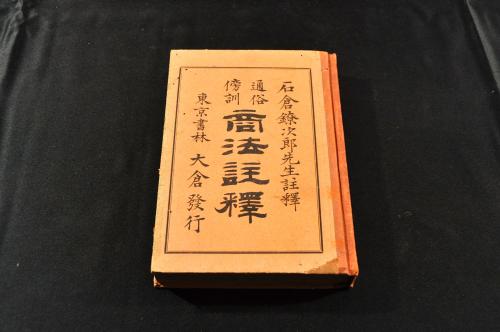 石倉鐐次郎先生註釋
通俗
傍訓
商法註釋
東京書林 大倉發行